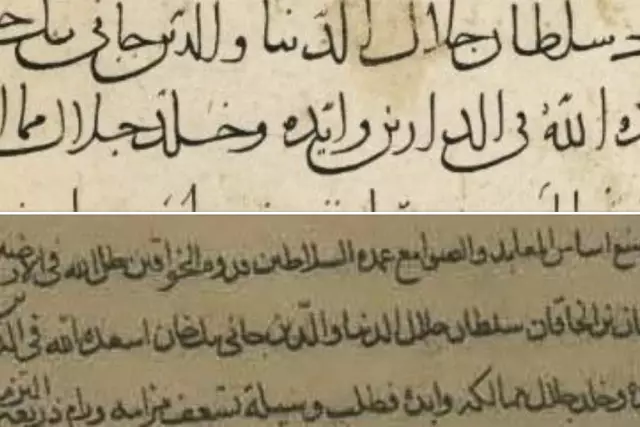 سلطان جلال الدنيا والدين جانى بك خـ
الله فى الدارين وايّده وخلّد جلال مما
اساس المعابد والصوامع عمدة السلاطين قدوة الخواقين ظل الله فى الارضين
بن الخاقان سلطان جلال الدنيا والدين جانى بك خان اسعده الله فى الد
وخلد جلال ممالكه وايده فطلب وسيلة تسعف مرامه ورام ذريعة